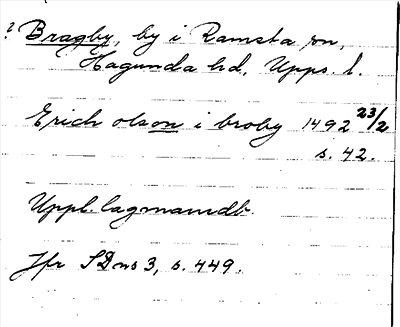 ? Bragby, by i Ramsta sn,
Hagunda hd, Upps. l.
Erich olson i broby 1492 23/2
s. 42.
Uppl. lagmansdb.
Jfr SD ns 3, s. 449.